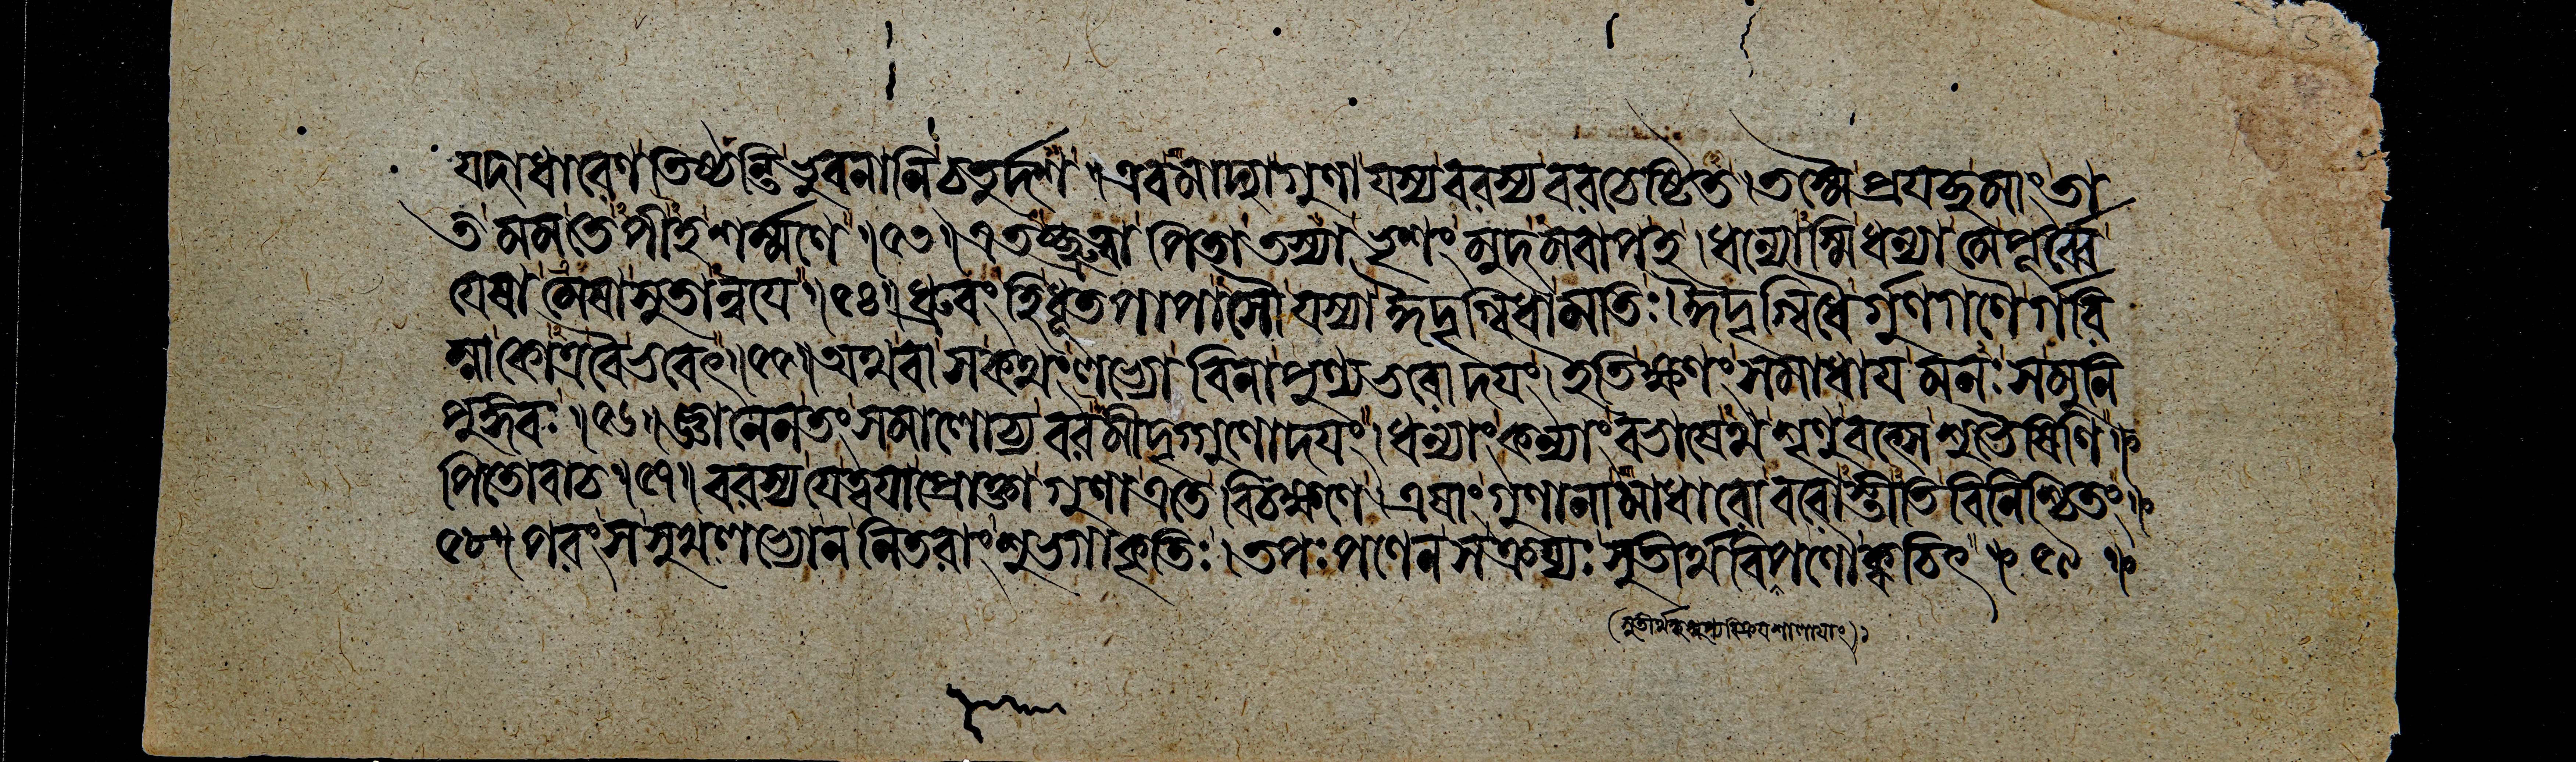 যদাধারেণ তিষ্ঠন্তি ভুবনানি চতুর্দশ ।এবমাদ্যাগুণা যস্য বরস্য বরচেষ্টিত ।তস্মৈ প্রযচ্ছ মাং তা
ত মমতে পীহ শর্ম্মণে ॥৫৩॥ এতচ্ছ্রুত্বা পিতা তস্যা ভৃশং মুদমবাপহ ।ধন্যোস্মি ধন্যা মে পূর্ব্বে
যেষা মেষা সুতান্বযে ॥৫৪॥ ধ্রুবং হি ধূতপাপাসৌ যস্যা ঈদৃগ্বিধা মতিঃ ।ঈদৃগ্বিধৈর্গুণগণৈর্গরি
ম্না কোত্র বৈ ভবেৎ ॥৫৫॥ অথবা স কথং লভ্যো বিনা পুণ্যভরোদযং ।ইতি ক্ষণং সমাধায মনঃ স মুনি
পুঙ্গবঃ ॥৫৬॥ জ্ঞানেন তং সমালোচ্য বরমীদৃগ্গুণোদযং ।ধন্যাং কন্যাং বভাষেথ শৃণু বৎসে শুভৈষিণি ॥
পিতোবাচ ॥৫৭॥ বরস্য যে ত্বযা প্রোক্তা গুণা এতে বিচক্ষণে ।এষাং গুণানামাধারো বরোস্তীতি বিনিশ্চিতং ॥
৫৮॥ পরং স সুখলভ্যো ন নিতরাং শুভগাকৃতিঃ ।তপঃপণেন স ক্রয্যঃ সুতীর্থবিপণৌ ক্বচিৎ ॥ ৫৯ ॥